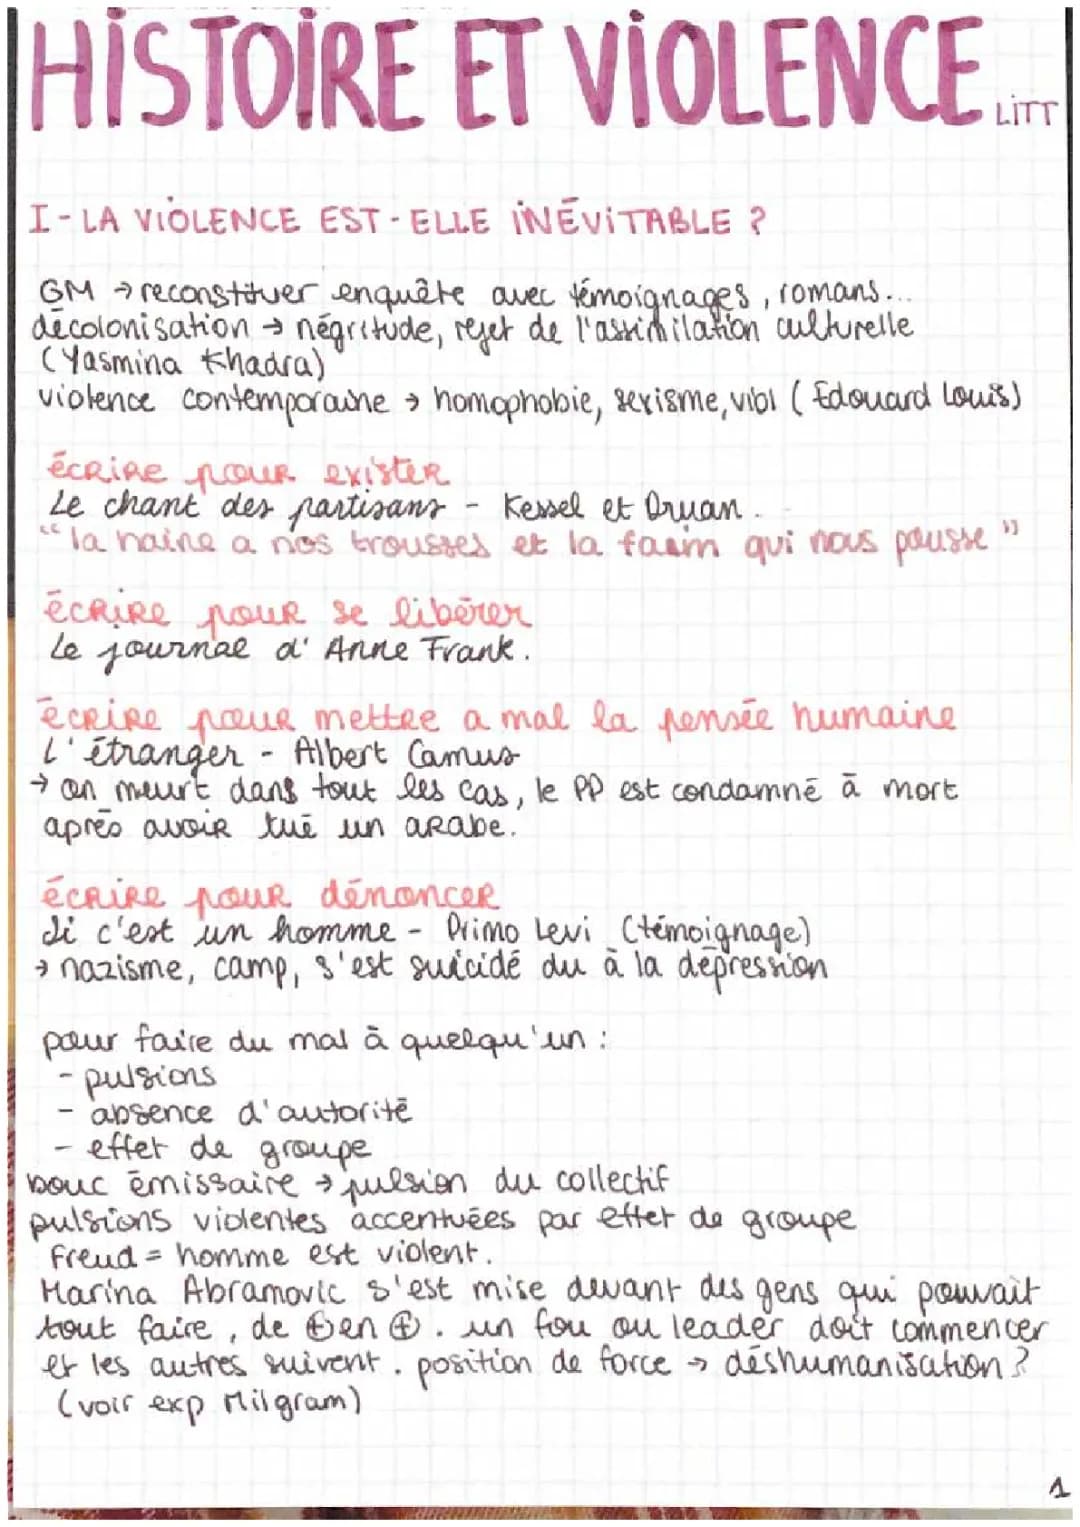 HISTOIRE ET VIOLENCE LITT
I - LA VIOLENCE EST-ELLE INÉVITABLE ?
GM → reconstituer enquête avec témoignages, romans...
décolonisation → négritude, rejet de l'assimilation culturelle
(Yasmina Khadra)
violence contemporaine → homophobie, sexisme, viol (Edouard Louis)
écrire pour exister
Le chant des partisans - Kessel et Druan.
"la haine a nos trousses et la faim qui nous pousse"
écrire pour se libérer
Le journal d'Anne Frank.
écrire pour mettre a mal la pensée humaine
L'étranger - Albert Camus
→ on meurt dans tout les cas, le PP est condamné à mort
après avoir tué un arabe.
écrire pour dénoncer
Si c'est un homme - Primo Levi (témoignage)
→ nazisme, camp, s'est suicidé du à la dépression
pour faire du mal à quelqu'un :
- pulsions
- absence d'autorité
- effet de groupe
bouc émissaire → pulsion du collectif
pulsions violentes accentuées par effet de groupe
Freud = homme est violent.
Marina Abramovic s'est mise devant des gens qui pouvait
tout faire, de ⊕ en ⊕. un fou ou leader doit commencer
et les autres suivent. position de force → déshumanisation ?
(voir exp Milgram)
1